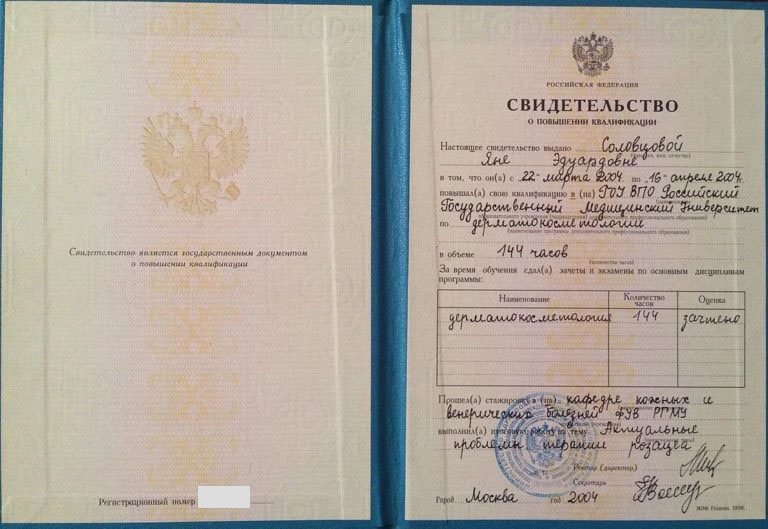 Свидетельство является государственным документом
о повышении квалификации
Регистрационный номер
РОССИЙСКАЯ ФЕДЕРАЦИЯ
СВИДЕТЕЛЬСТВО
О ПОВЫШЕНИИ КВАЛИФИКАЦИИ
Настоящее свидетельство выдано Соловцовой
(фамилия, имя, отчество)
Яне Эдуардовне
в том, что он(а) с „22“ марта 2004 по „16“ апреля 2004
повышал(а) свою квалификацию в (на) ГОУ ВПО Российский
Государственный Медицинский Университет
по дерматокосметологии
(наименование программы дополнительного профессионального образования)
в объеме 144 часов
(количество часов)
За время обучения сдал(а) зачеты и экзамены по основным дисциплинам
программы:
Наименование Количество часов Оценка
дерматокосметология 144 зачтено
Прошел(а) стажировку в (на) кафедре кожных и
венерических болезней ФУВ РГМУ
выполнил(а) итоговую работу на тему Актуальные
проблемы терапии розацеа
Ректор (директор)
Секретарь
Город Москва год 2004
МПФ Гознака. 1996.